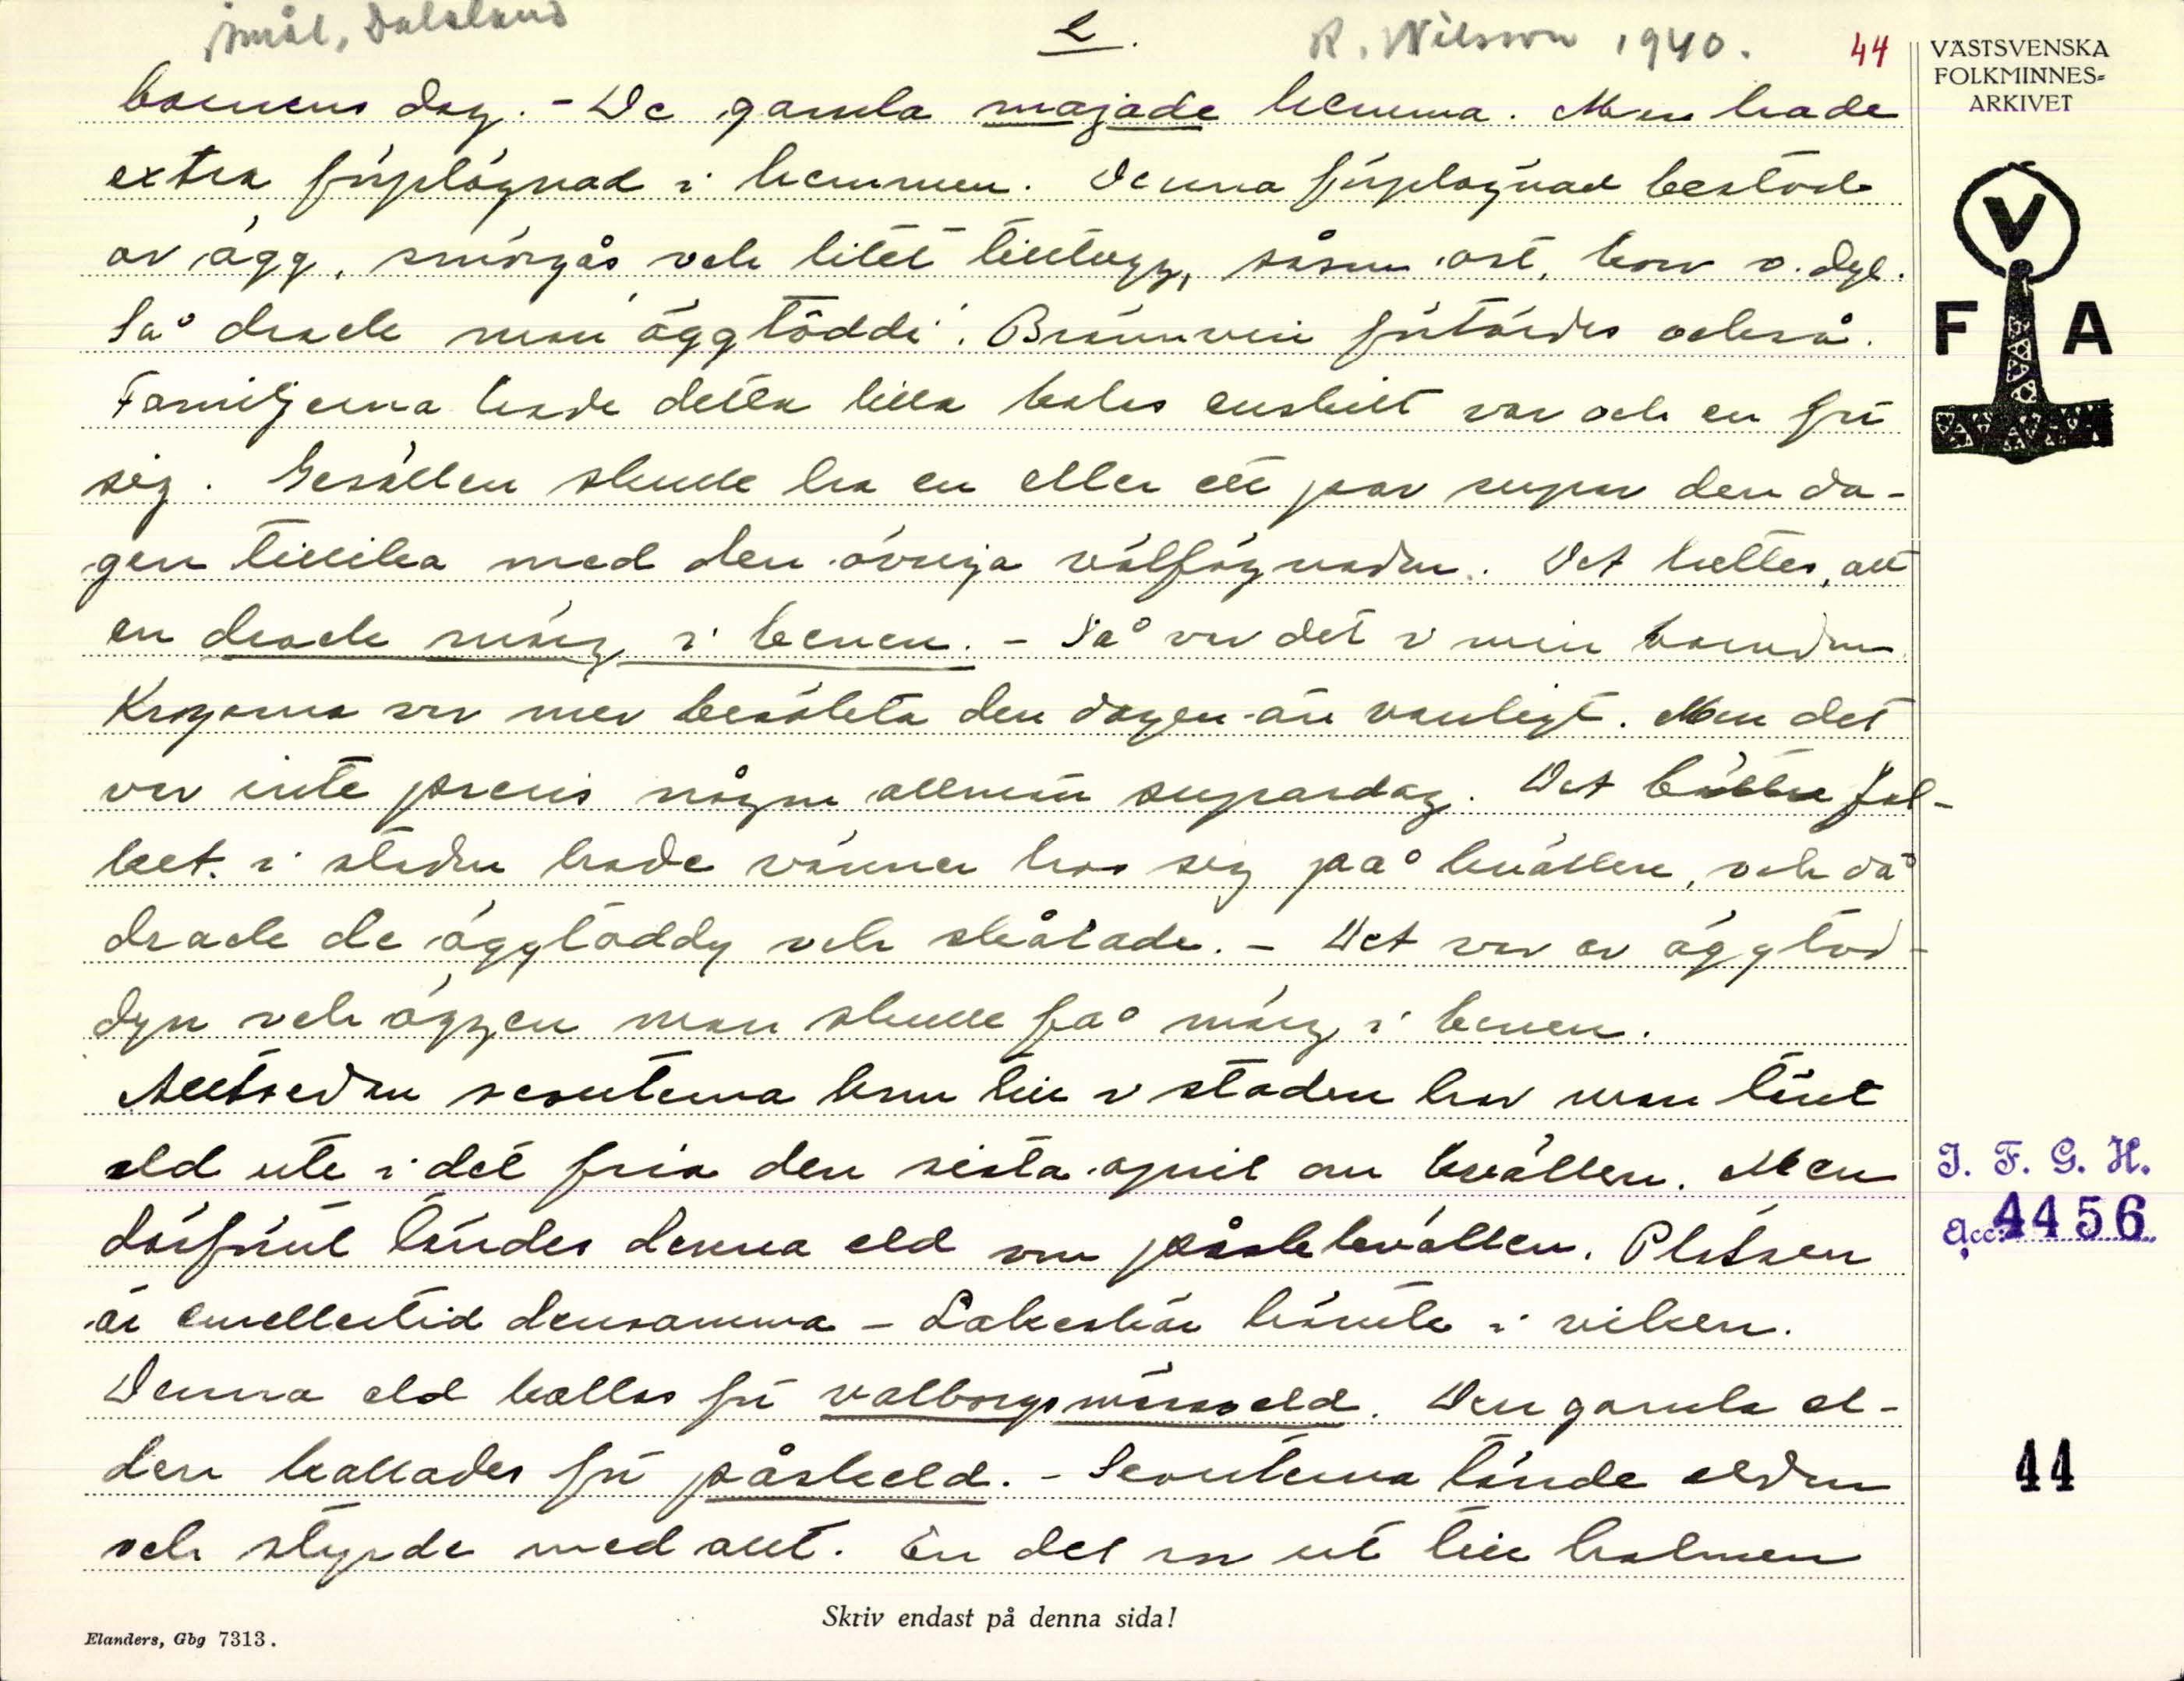 Åmål, Dalsland
2.
R. Nilsson 1940.
44
VÄSTSVENSKA
FOLKMINNES=
ARKIVET
barnens dag. - De gamla majade hemma. Man hade
extra förplägnad i hemmen. Denna förplägnad bestod
av ägg, smörgås och litet tilltugg, såsom ost, korv o. dyl.
Så drack man äggtoddi. Brännvin förtärdes också.
Familjerna hade detta lilla kalas enskilt var och en för
sig. Gesällen skulle ha en eller ett par supar den da-
gen tillika med den övriga välfägnaden. Det hettes, att
en drack märg i benen. - Så var det i min barndom
Krogarna var mer besökta den dagen än vanligt. Men det
var inte precis någon allmän supardag. Det bättre fol-
ket i staden hade vänner hos sig på kvällen, och då
drack de äggtoddy och skålade. - Det var av äggtod-
dyn och äggen man skulle få märg i benen.
Alltsedan scouterna kom till i staden har man tänt
eld ute i det fria den sista april om kvällen. Men
därförut tändes denna eld om påskkvällen. Platsen
är emellertid densamma - Lakeskär härute i viken.
Denna eld kallas för valborgsmässoeld. Den gamla el-
den kallades för påskeld. - Scouterna tände elden
och styrde med allt. En del ror ut till holmen
V
F A
I. F. G. H.
Acc. 4456
44
Skriv endast på denna sida!
Elanders, Gbg 7313.